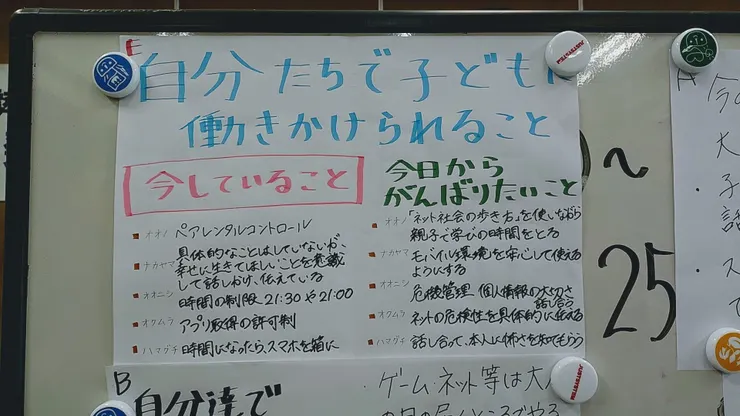 E
自分たちで子どもに
働きかけられること
今していること
オオノ ペアレンタルコントロール
ナカヤマ 具体的なことはしていないが、
幸せに生きてほしいことを意識
して話しかけ、伝えている
オオニシ 時間の制限 21:30や21:00
オクムラ アプリ取得の許可制
ハマグチ 時間になったら、スマホを箱に
今日から
がんばりたいこと
オオノ 「ネット社会の歩き方」を使いながら
親子で学びの時間をとる
ナカヤマ モバイル環境を安心して使える
ようにする
オオニシ 危機管理 個人情報の大切さ
話し合う
オクムラ ネットの危険性を具体的に伝える
ハマグチ 話し合って、本人に怖さを知てもらう
〜
25
B
自分達で
ゲーム・ネット等は大人
A
今の
大
・子
話
・ス